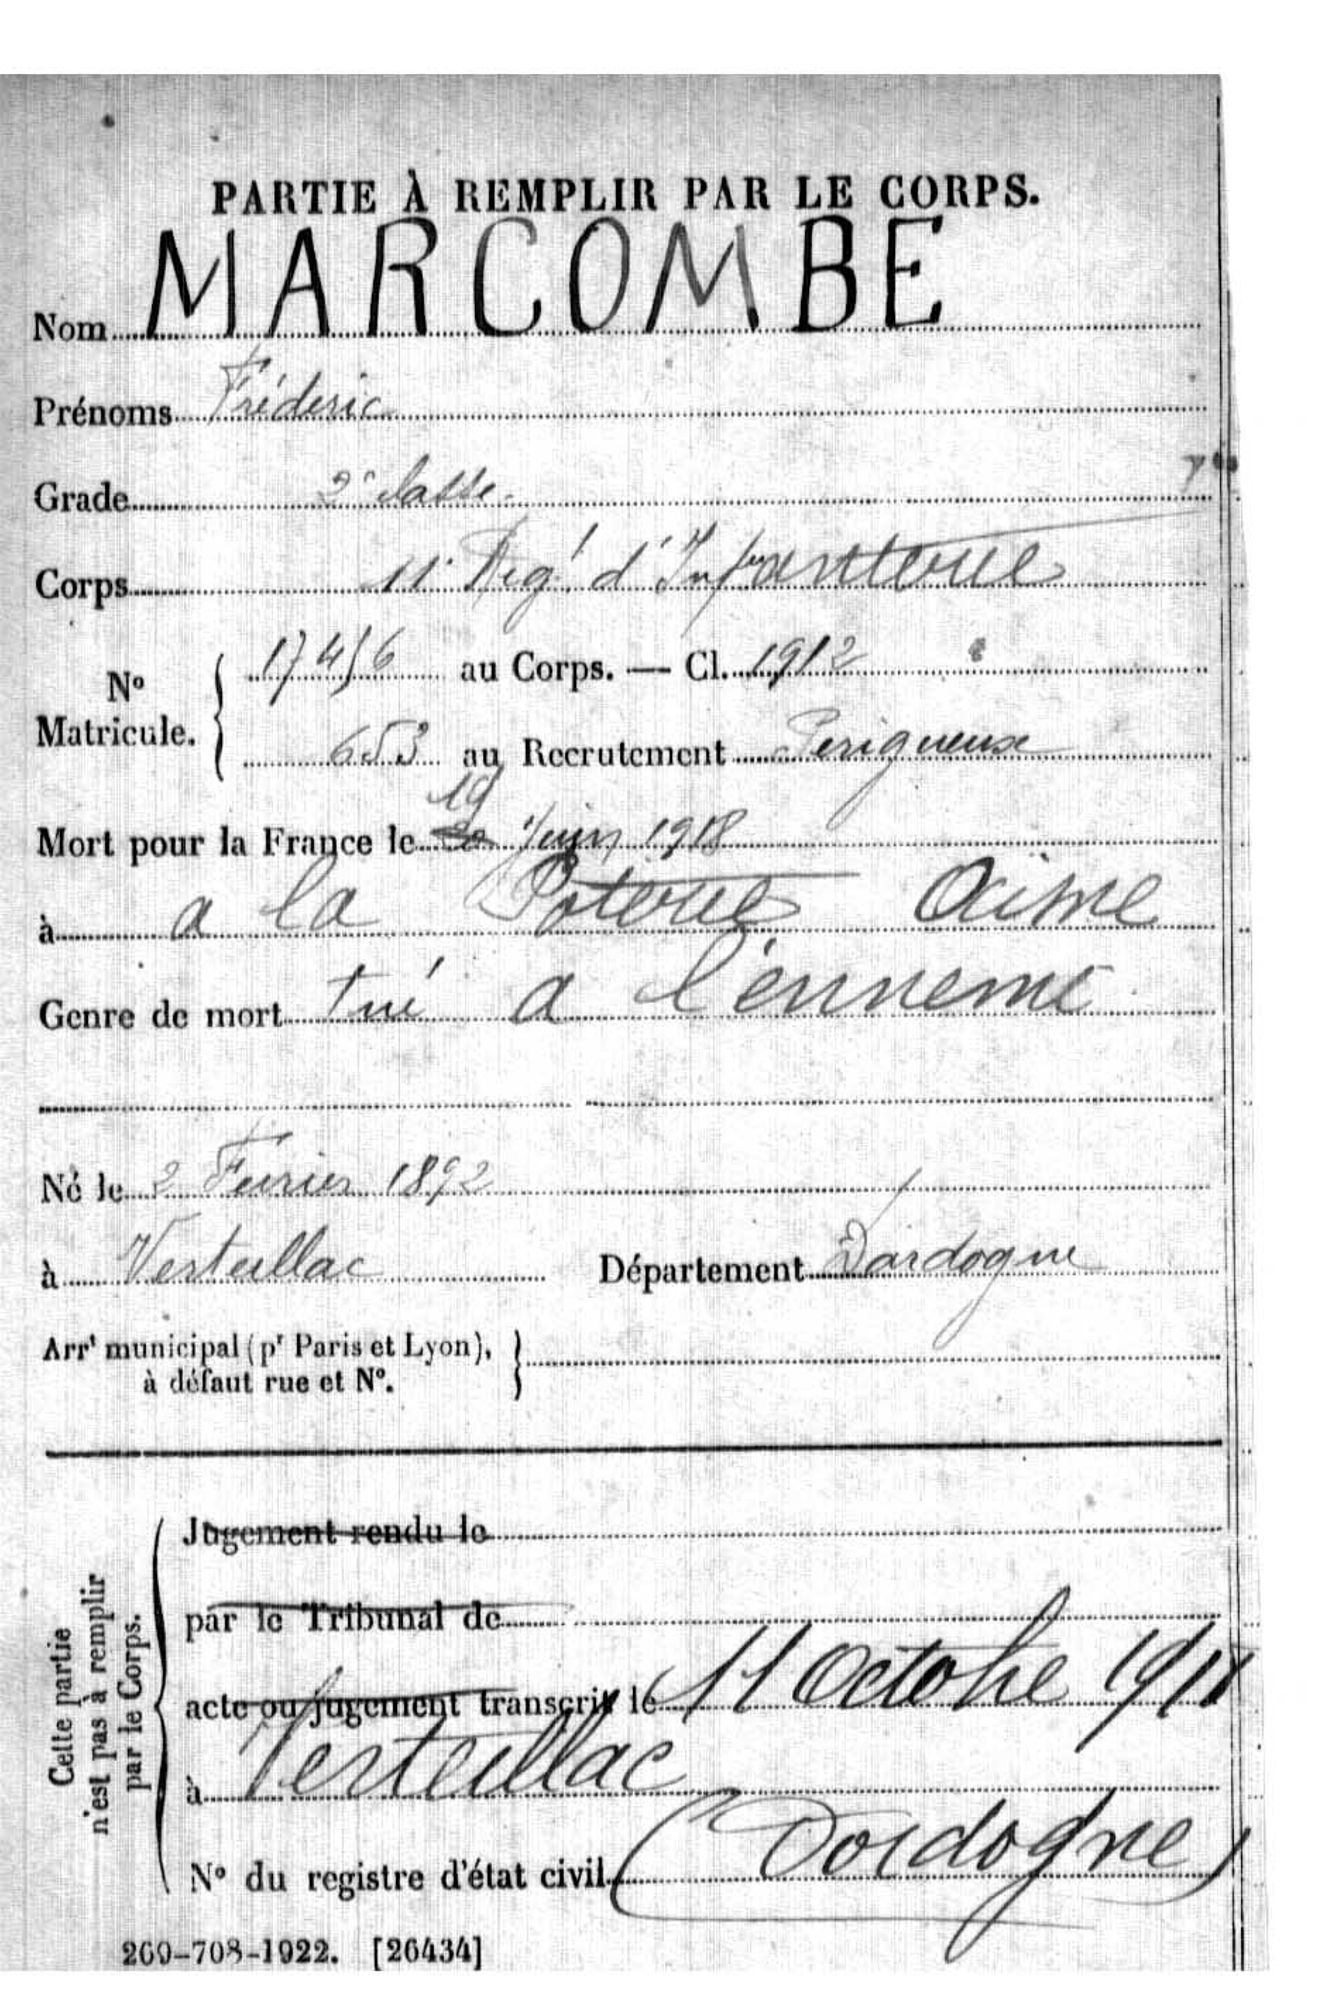 PARTIE À REMPLIR PAR LE CORPS.
Nom MARCOMBE
Prénoms Fréderic
Grade 2e classe
Corps 11e Règt d'Infanterie
No Matricule. 17456 au Corps. — Cl. 1912
653 au Recrutement Perigueux
19
Mort pour la France le 20 Juin 1918
à a la Poterie Aisne
Genre de mort tué a l'ennemi
Né le 2 Fevrier 1892
à Verteillac Département Dordogne
Arrt municipal (pr Paris et Lyon),
à défaut rue et No.
Cette partie
n'est pas à remplir
par le Corps.
Jugement rendu le
par le Tribunal de
acte ou jugement transcrit le 11 Octobre 1918
à Verteillac
No du registre d'état civil (Dordogne)
269-708-1922. [26434]